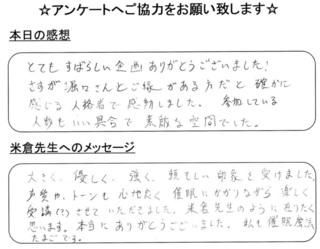 ☆アンケートへご協力をお願い致します☆
本日の感想
とてもすばらしい企画ありがとうございました!
さすが さんとご縁がある方だと確かに
感じる人格者で感動しました。参加している
人数もいい具合で素敵な空間でした。
米倉先生へのメッセージ
大きく、優しく、強く、頼もしい印象を受けました。
声質や、トーンも心地よく催眠にかかりながら楽しく
受講(?)させていただきました。米倉先生のように在りたく
思います。本当にありがとうございました。私も催眠療法
たまごです。